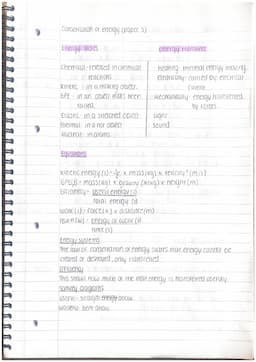 Conservation of energy (paper 2)
Energy stores
energy transfers
Chemical: released in chemical reactions
Kinetic: in a moving object
GPE: in an object that's been raised
Elastic: in a stretched object
Thermal: in a hot object
Nuclear: in atoms
Heating: thermal energy moving
electricity: carried by electrical current
mechanically: energy transferred by forces
light
sound
Equations
Kinetic energy (J) = ½ x mass (kg) x velocity² (m/s)
GPE (J) = mass (kg) x gravity (N/kg) x height (m)
Efficiency = useful energy (J)
total energy (J)
Work (J) = Force (N) x distance (m)
Power (W) = energy or work (J)
time (s)
Energy systems
The law of conservation of energy states that energy cannot be
created or destroyed, only transferred
Efficiency
This shows how much of the total energy is transferred usefully
Sankey diagrams
useful: straight energy arrow
wasted: bent arrow